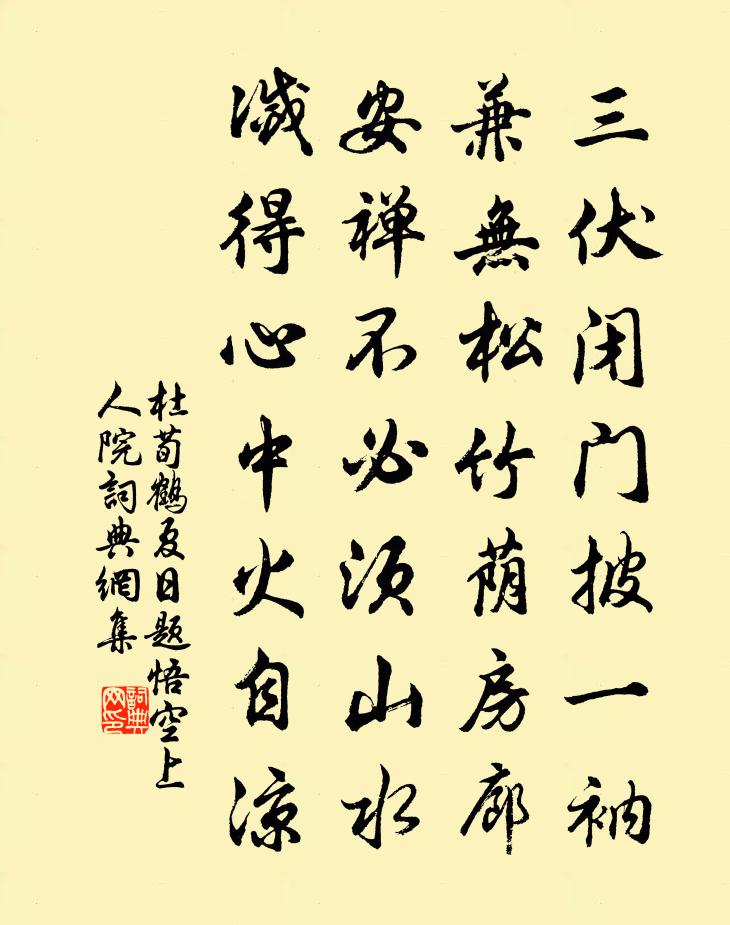 三伏闭门披一衲
兼無松竹荫房廊
安禅不必须山水
滅得心中火自凉
杜荀鶴夏日題悟空上
人院詞典網集
詞典网印